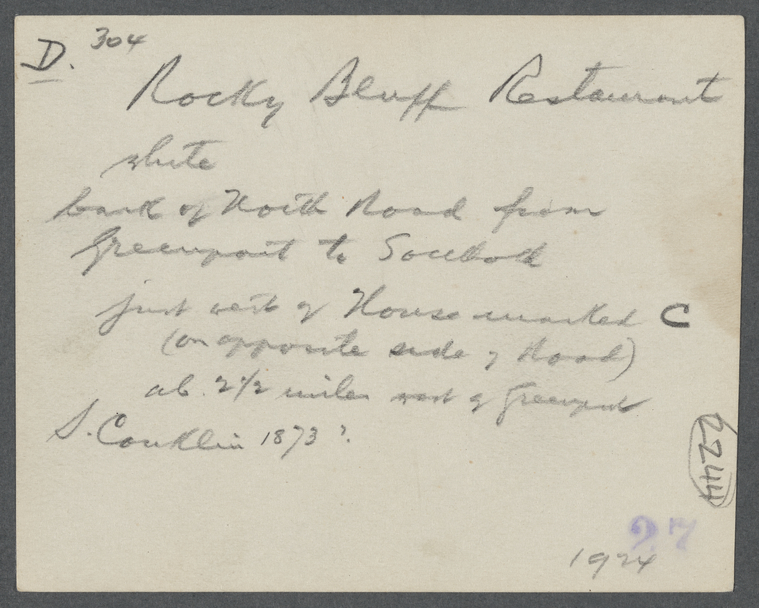 D. 304
Rocky Bluff Restaurant
white
bank of North Road from
Greenport to Southold
just west of House marked C
(on opposite side of Road)
ab. 2 1/2 miles west of Greenport
S. Conklin 1873?
2244
27
1924